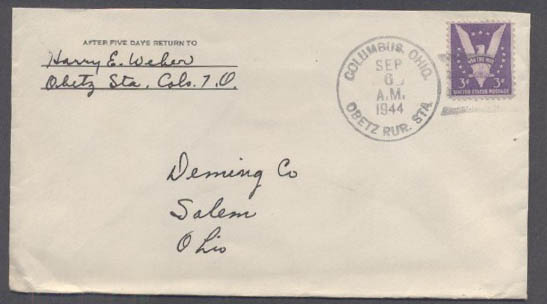 AFTER FIVE DAYS RETURN TO
Harry E. Weber
Obetz Sta. Colo. 7, O.
COLUMBUS, OHIO.
SEP
6
A.M.
1944
OBETZ RUR. STA.
WIN THE WAR
3¢ 3¢
UNITED STATES POSTAGE
Deming Co
Salem
Ohio